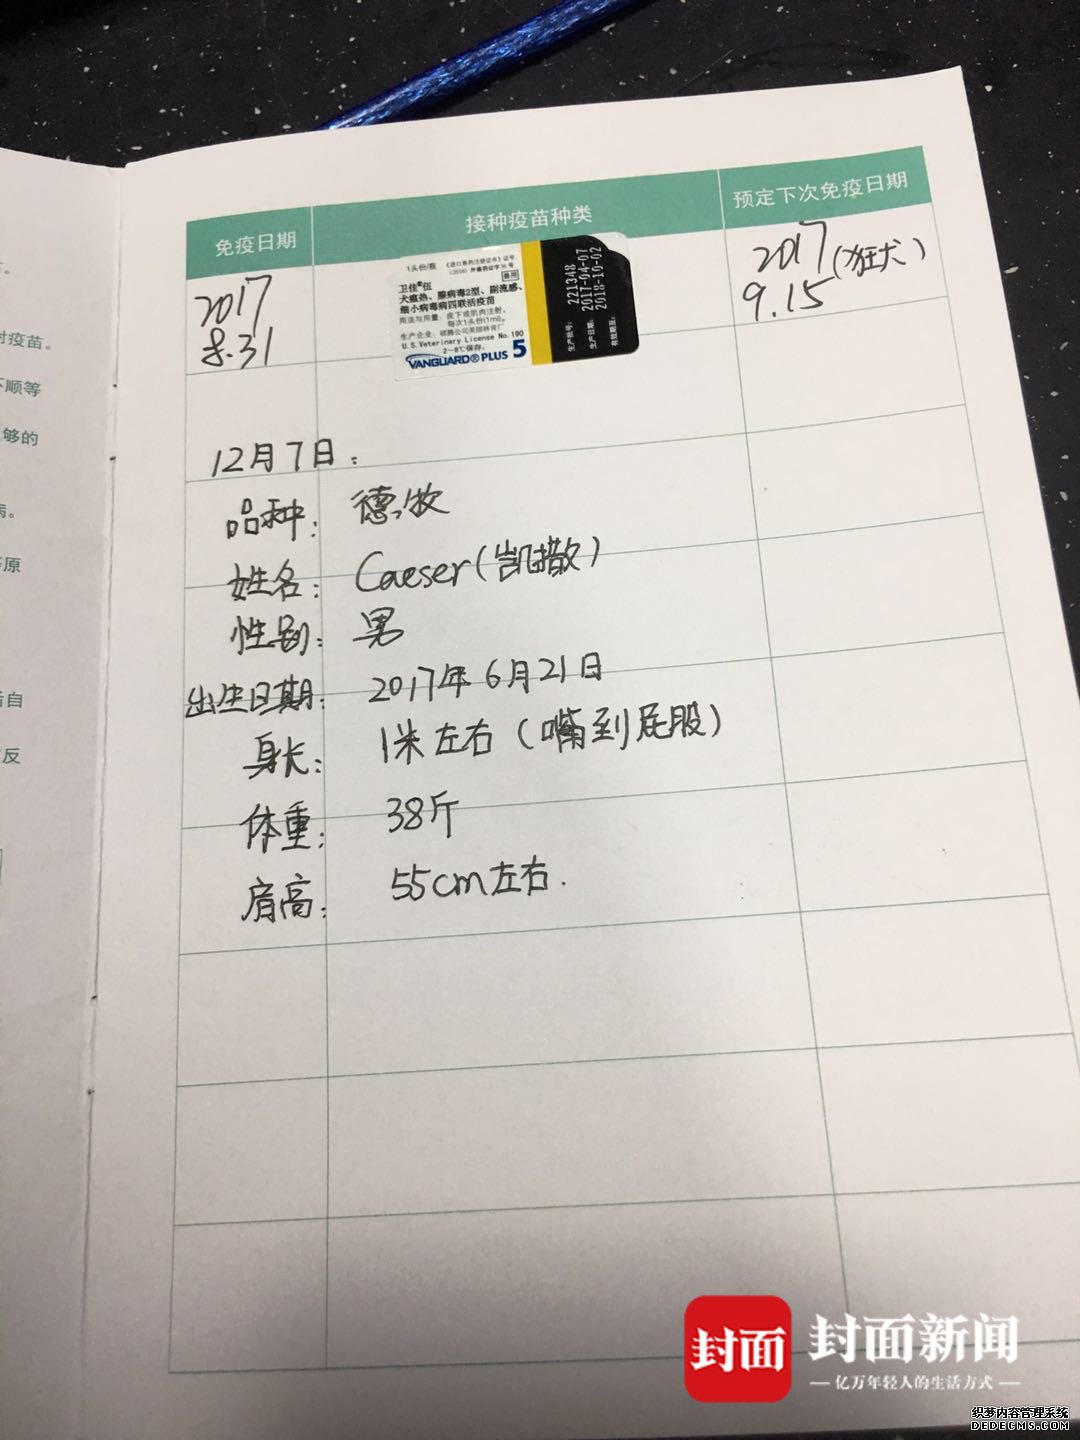 免疫日期
接种疫苗种类
预定下次免疫日期
2017
8.31
1头份/瓶 《进口兽药注册证书》证号
(2016)外兽药证字36号
兽用
卫佳®伍
犬瘟热、腺病毒2型、副流感、
细小病毒病四联活疫苗
用法与用量：皮下或肌肉注射，
每次1头份(1ml)。
生产企业：硕腾公司美国林肯厂
U.S. Veterinary License No.190
2~8℃保存。
VANGUARD® PLUS 5
生产批号： 221348
生产日期： 2017-04-07
有效期至： 2018-10-02
2017 (狂犬)
9.15
12月7日：
品种： 德牧
姓名： Caeser(凯撒)
性别： 男
出生日期： 2017年6月21日
身长： 1米左右（嘴到屁股）
体重： 38斤
肩高： 55cm左右.
对疫苗。
不顺等
够的
病。
原
后自
反
封面
封面新闻
亿万年轻人的生活方式
织梦内容管理系统
DEDECMS.COM